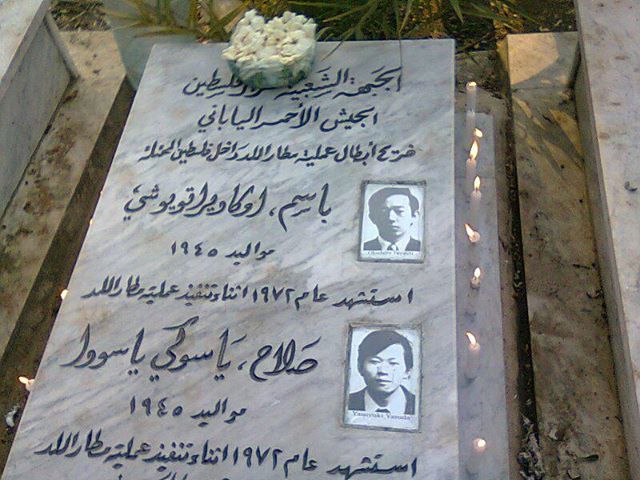 الجبهة الشعبية لتحرير فلسطين
الجيش الأحمر الياباني
ضريح أبطال عملية مطار اللد داخل فلسطين المحتلة
باسم، اوكاويرا قويوشي
مواليد ١٩٤٥
استشهد عام ١٩٧٢ اثناء تنفيذ عملية مطار اللد
صلاح، ياسوكي ياسووا
Yasuyuki Yasuda
مواليد ١٩٤٥
استشهد عام ١٩٧٢ اثناء تنفيذ عملية مطار اللد